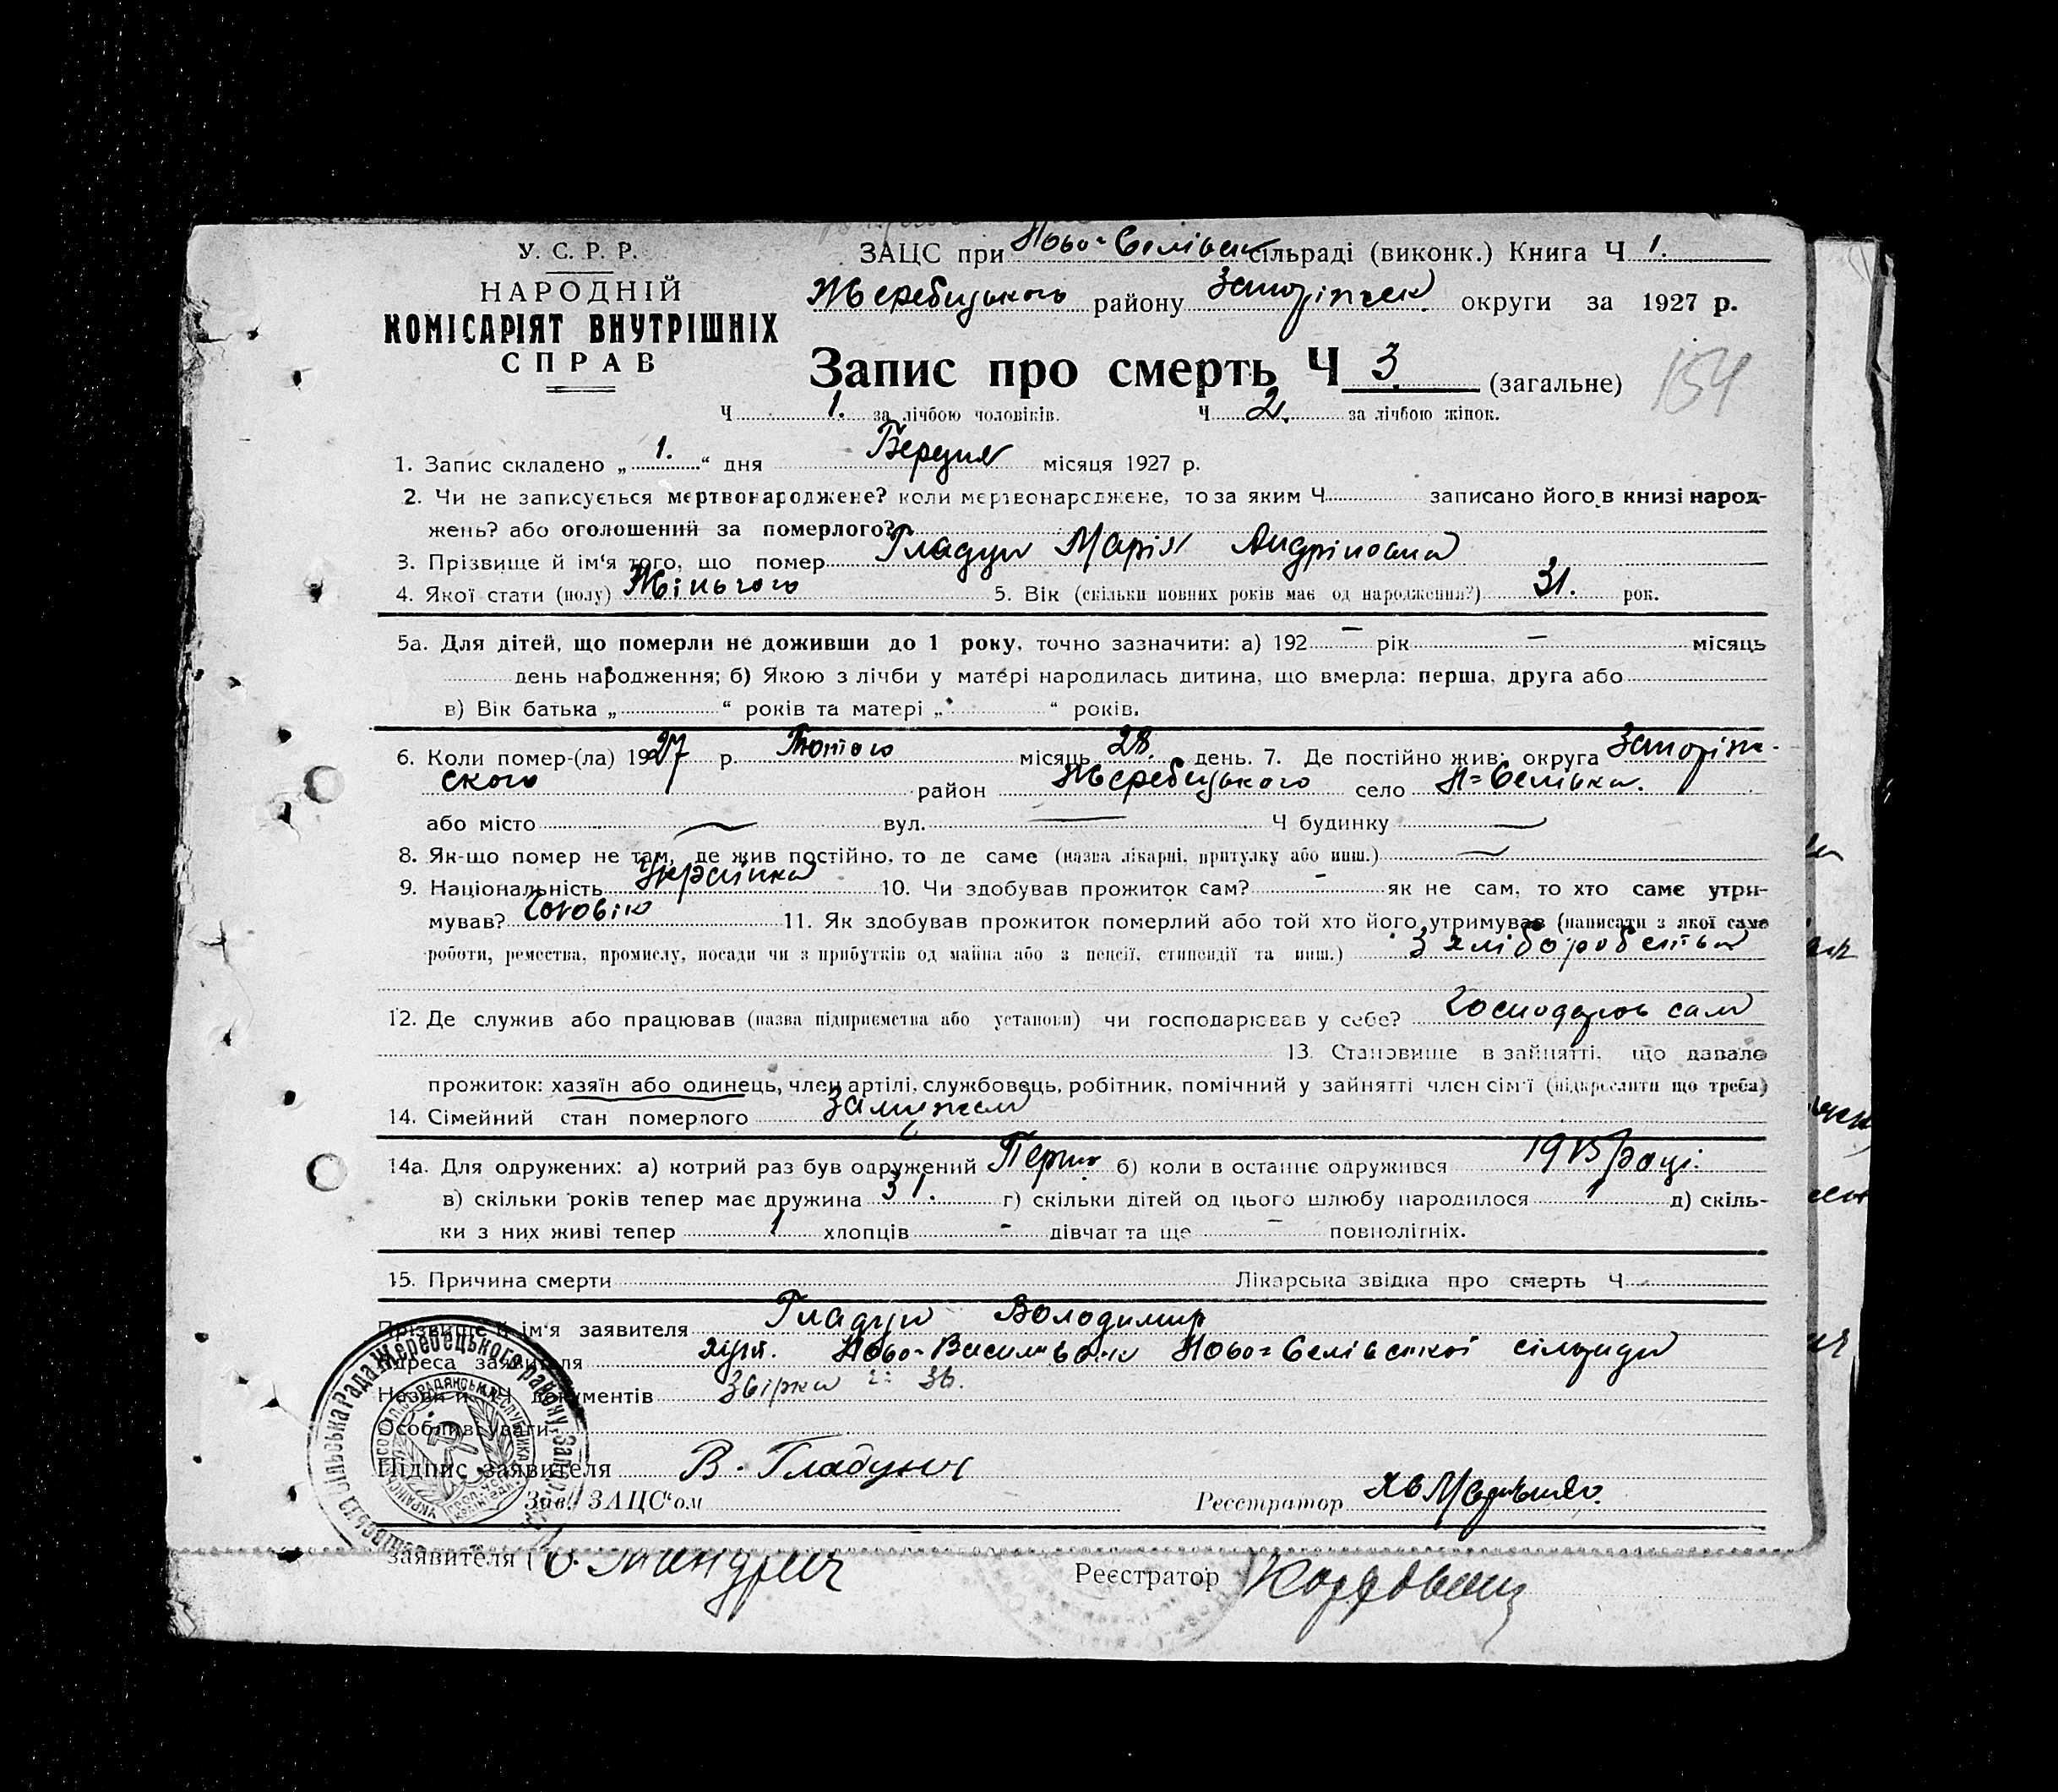 У. С. Р. Р.
НАРОДНІЙ
КОМІСАРІЯТ ВНУТРІШНІХ
СПРАВ
ЗАЦС при Ново-Селівск сільраді (виконк.) Книга Ч 1.
Жеребецького району Запоріжск. округи за 1927 р.
Запис про смерть Ч 3 (загальне)
154
Ч 1. за лічбою чоловіків. Ч 2. за лічбою жінок.
1. Запис складено „ 1. “ дня Березня місяця 1927 р.
2. Чи не записується мертвонароджене? коли мертвонароджене, то за яким Ч записано його в книзі народ-
жень? або оголошений за померлого?
3. Прізвище й ім'я того, що помер Гладун Марія Андріповна
4. Якої стати (полу) Жіночого 5. Вік (скільки повних років має од народження?) 31. рок.
5а. Для дітей, що померли не доживши до 1 року, точно зазначити: а) 192 – рік – місяць
день народження; б) Якою з лічби у матері народилась дитина, що вмерла: перша, друга або
в) Вік батька „ “ років та матері „ “ років.
6. Коли помер-(ла) 1927 р. Лютого місяць 28. день. 7. Де постійно жив: округа Запоріж-
ского район Жеребецького село Н=Селівка.
або місто — вул. — Ч будинку —
8. Як-що помер не там, де жив постійно, то де саме (назва лікарні, притулку або инш.) —
9. Національність Українка 10. Чи здобував прожиток сам? - як не сам, то хто саме утри-
мував? Чоловік 11. Як здобував прожиток померлий або той хто його утримував (написати з якої саме
роботи, ремества, промислу, посади чи з прибутків од майна або з пенсії, стипендії та инш.) З хліборобства
12. Де служив або працював (назва підприємства або установи) чи господарював у себе? Господарюв сам
13. Становище в зайнятті, що давало
прожиток: хазяїн або одинець, член артілі, службовець, робітник, помічний у зайнятті член сім'ї (підкреслити що треба)
14. Сімейний стан померлого Замужем
14а. Для одружених: а) котрий раз був одружений Перш б) коли в останнє одружився 1915 році.
в) скільки років тепер має дружина 31. г) скільки дітей од цього шлюбу народилося 1 д) скіль-
ки з них живі тепер 1 хлопців - дівчат та ще – повнолітніх.
15. Причина смерти Лікарська звідка про смерть Ч
Прізвище й ім'я заявителя Гладун Володимир
Адреса заявителя хут. Ново-Василівськ Ново=Селівської сільради
Назви й Ч документів Звірка ч: 36.
Особливі уваги
Підпис заявителя В. Гладунь
Зав. ЗАЦС'ом Реєстратор
сільська Рада Жеребецького району, Запор.
заявителя Реєстратор